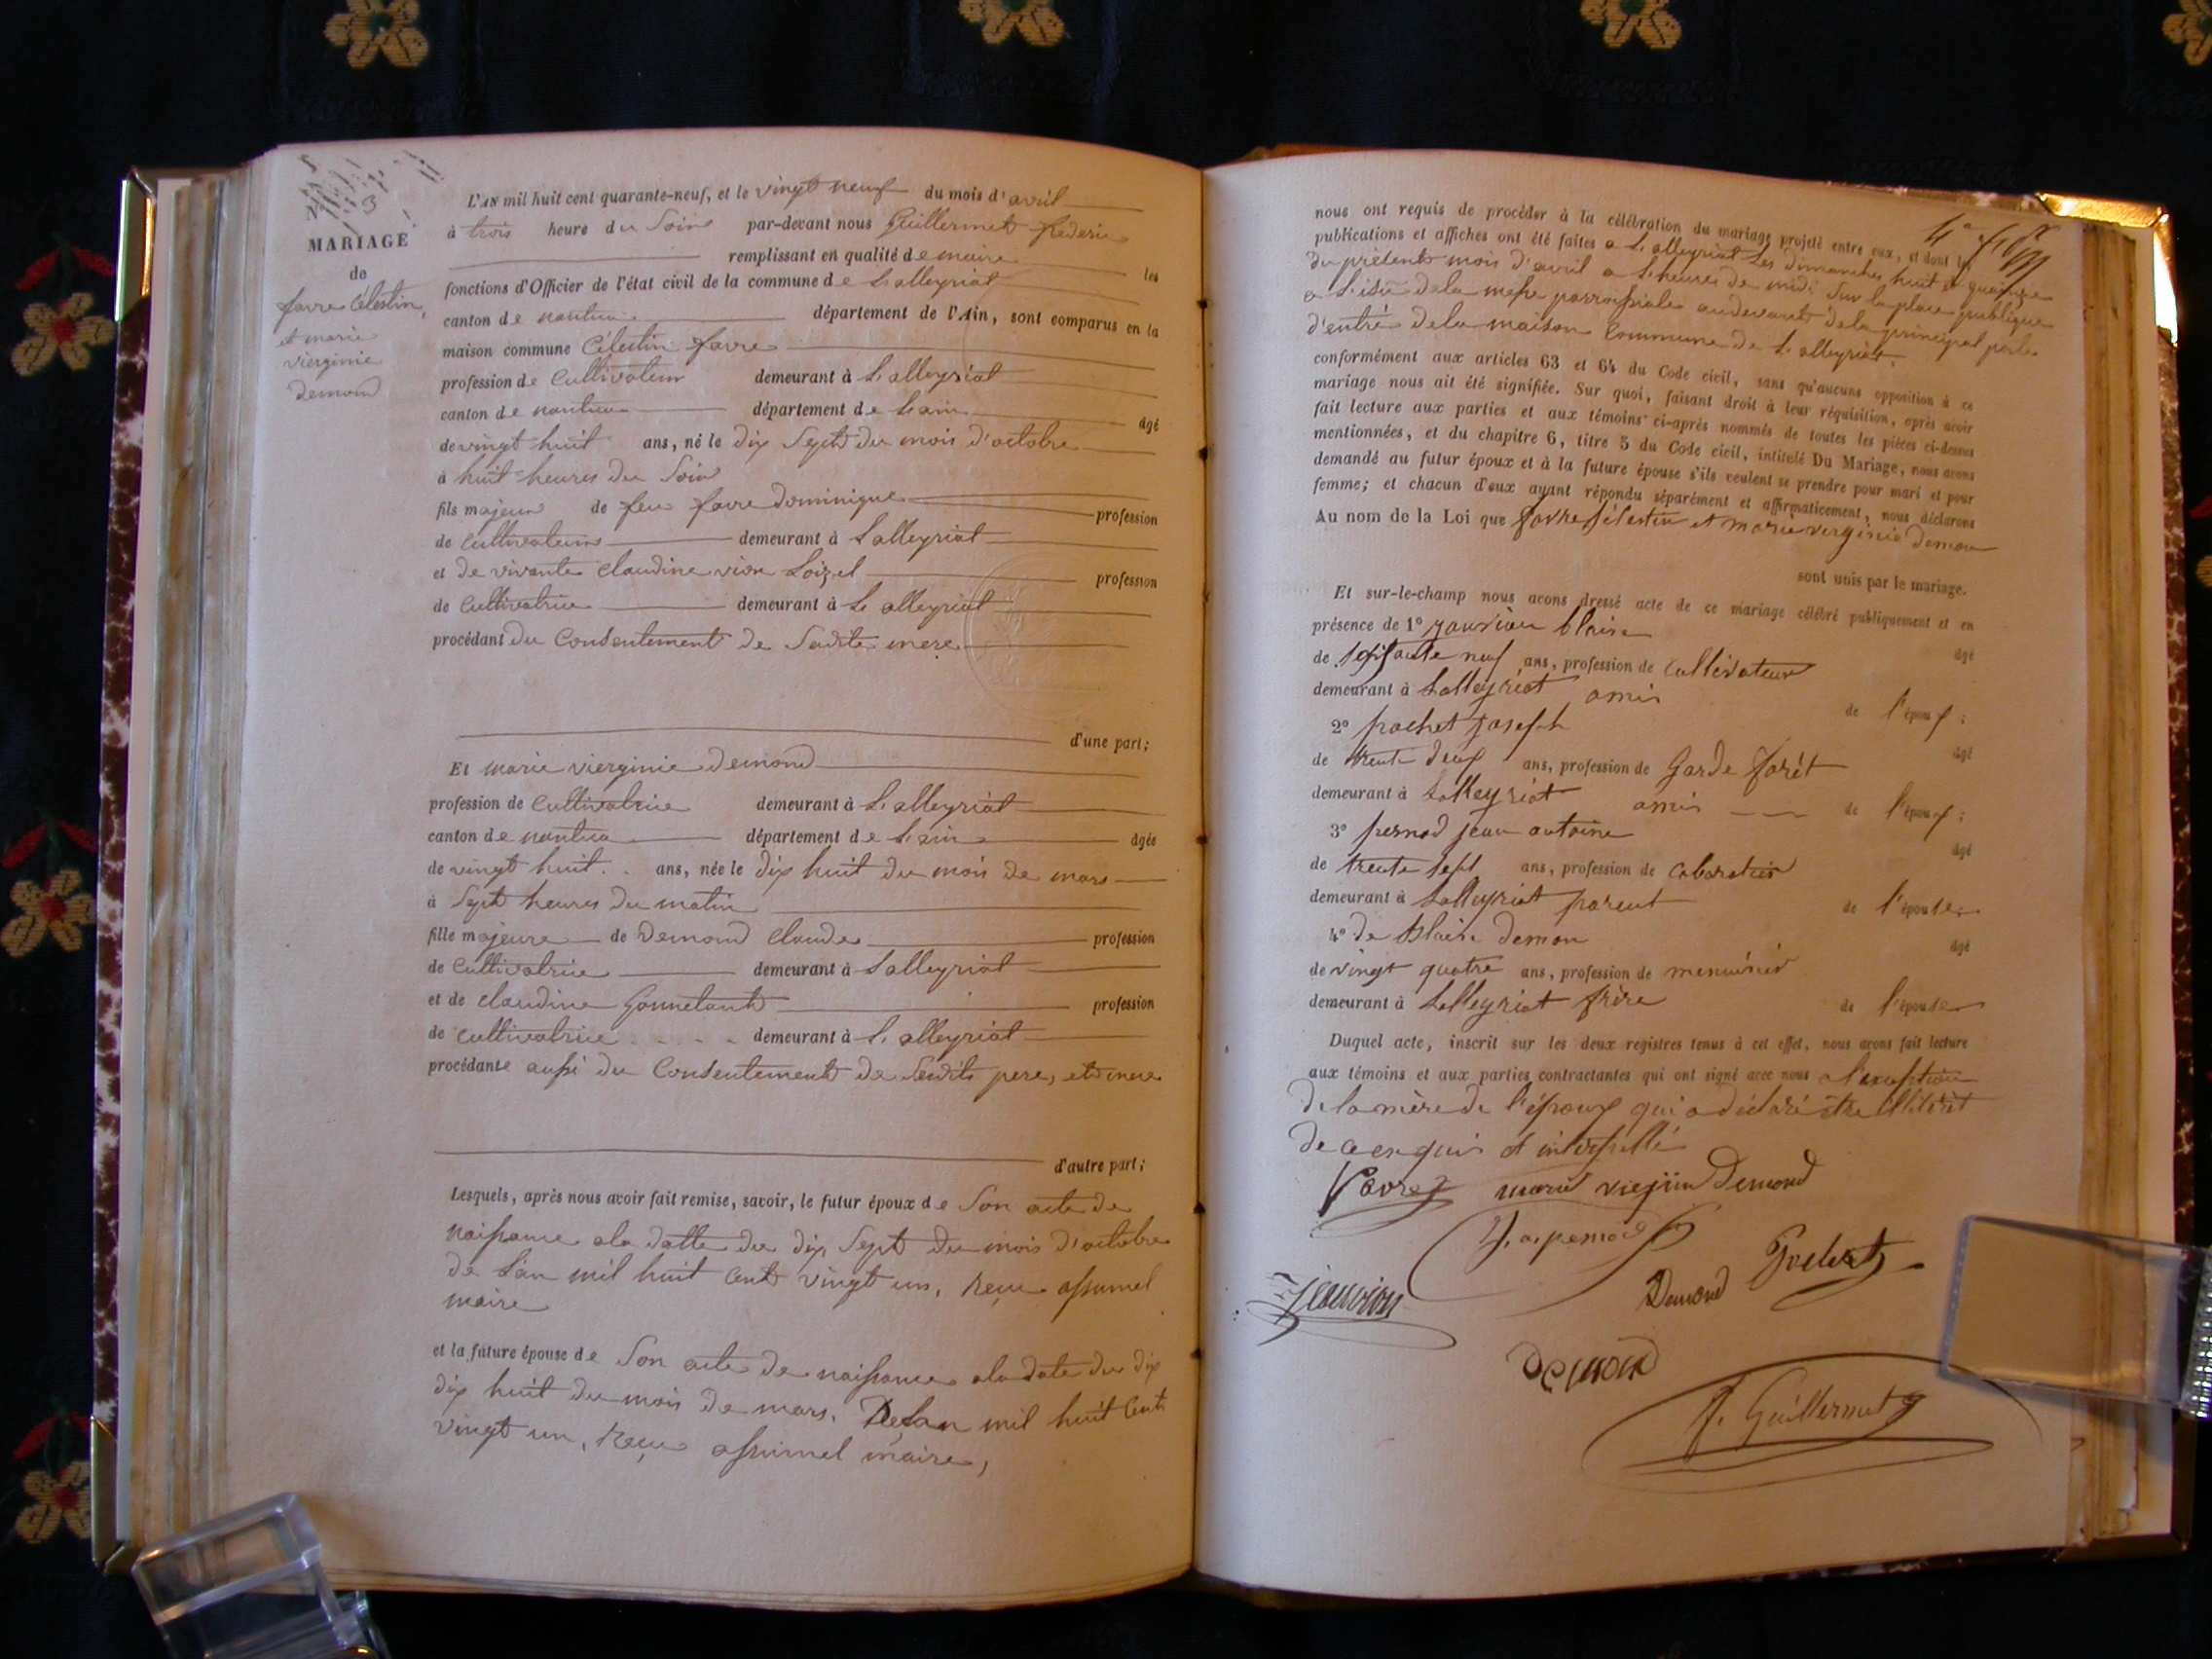 3
MARIAGE
de
favre Célestin,
et marie
vierginie
demond
L'AN mil huit cent quarante-neuf, et le vingt neuf du mois d'avril
à trois heure du Soir par-devant nous Guillermet frederic
remplissant en qualité de maire les
fonctions d'Officier de l'état civil de la commune de L'alleyriat
canton de nantua département de l'Ain, sont comparus en la
maison commune Célestin favre
profession de Cultivateur demeurant à L'alleyriat
canton de nantua département de L'ain âgé
de vingt huit ans, né le dix Sept du mois d'octobre
à huit heures du Soir
fils majeur de feu favre Dominique profession
de Cultivateur demeurant à Lalleyriat
et de vivante Claudine vion Loizel profession
de Cultivatrice demeurant à L'alleyriat
procédant du Consentement de Sadite mere
d'une part;
Et marie vierginie demond
profession de Cultivatrice demeurant à L'alleyriat
canton de nantua département de L'ain âgée
de vingt huit ans, née le dix huit du mois de mars
à Sept heures du matin
fille majeure de Demond Claude profession
de Cultivatrice demeurant à Lalleyriat
et de Claudine Gonnetand profession
de Cultivatrice demeurant à L'alleyriat
procédante aussi du Consentement de Sesdits pere, et mere
d'autre part;
Lesquels, après nous avoir fait remise, savoir, le futur époux de Son acte de
naissance a la datte du dix Sept du mois d'octobre
de L'an mil huit Cent vingt un, Reçue assumel
maire
et la future épouse de Son acte de naissance a la date du dix
dix huit du mois de mars. De Lan mil huit Cent
vingt un, Reçue assumel maire,
nous ont requis de procéder à la célébration du mariage projeté entre eux, et dont les
publications et affiches ont été faites a L'alleyriat Les dimanches huit et quinze
du présent mois d'avril a L'heure de midi Sur la place publique
a L'isue de la messe parroissiale au devant de la principal porte
d'entré de la maison Commune de L'alleyriat,
conformément aux articles 63 et 64 du Code civil, sans qu'aucune opposition à ce
mariage nous ait été signifiée. Sur quoi, faisant droit à leur réquisition, après avoir
fait lecture aux parties et aux témoins ci-après nommés de toutes les pièces ci-dessus
mentionnées, et du chapitre 6, titre 5 du Code civil, intitulé Du Mariage, nous avons
demandé au futur époux et à la future épouse s'ils veulent se prendre pour mari et pour
femme; et chacun d'eux ayant répondu séparément et affirmativement, nous déclarons
Au nom de la Loi que favre Célestin et marie verginie Demon
sont unis par le mariage.
Et sur-le-champ nous avons dressé acte de ce mariage célébré publiquement et en
présence de 1° Blaise âgé
de soixante neuf ans, profession de Cultivateur
demeurant à Lalleyriat amis de l'époux;
2° pochet Joseph âgé
de trente deux ans, profession de Garde forêt
demeurant à Lalleyriat amis de l'époux;
3° pernod jean antoine âgé
de trente sept ans, profession de Cabaretier
demeurant à Lalleyriat parent de l'épouse;
4° de Blaise Demon âgé
de vingt quatre ans, profession de menuisier
demeurant à Lalleyriat frère de l'épouse
Duquel acte, inscrit sur les deux registres tenus à cet effet, nous avons fait lecture
aux témoins et aux parties contractantes qui ont signé avec nous a l'exeption
de la mère de l'époux qui a déclaré être illiteré
de ce enquis et interpellé
favre marie Demond
J. a. pernod
Demond
Demond
f. Guillermet